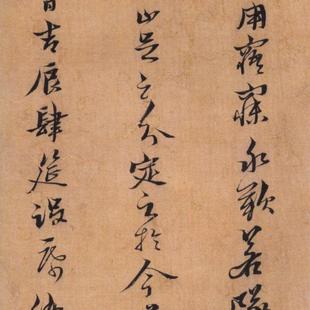 用寤寐永歎若
止足之分定之於今
吉辰肆筵設席